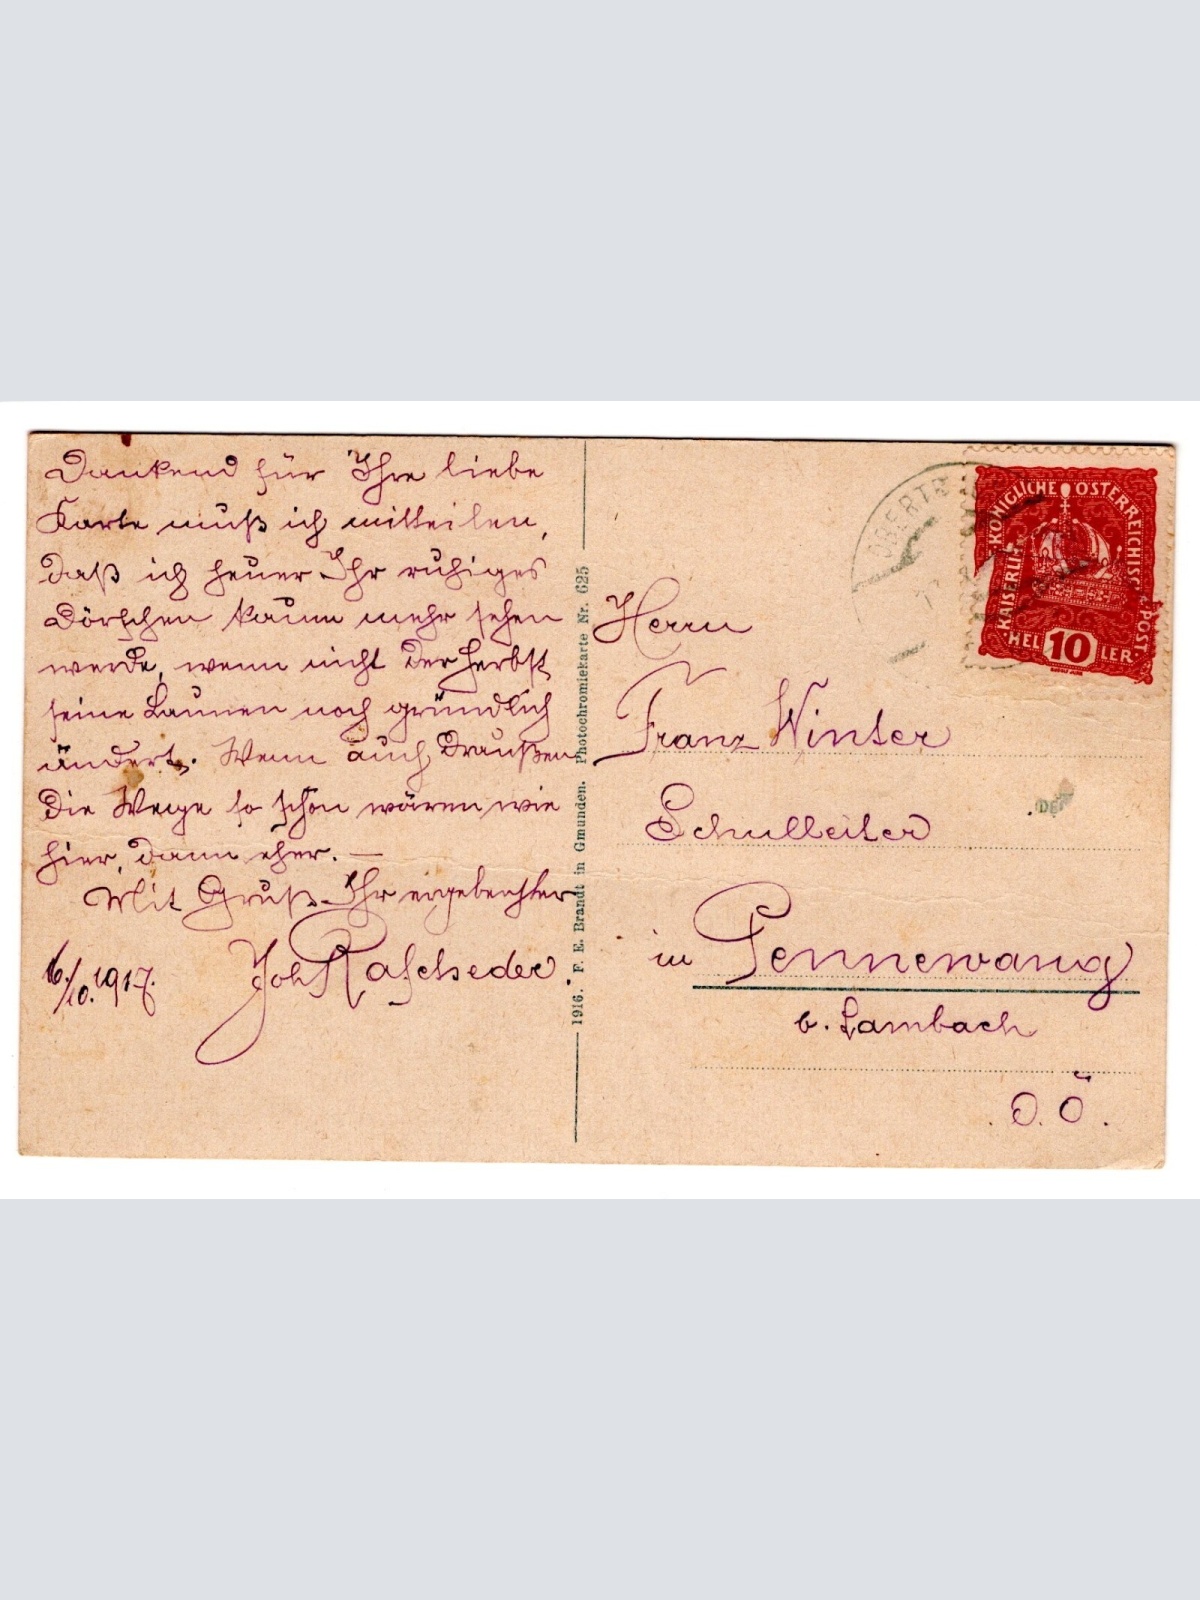 Dankend für Ihre liebe
Karte muß ich mitteilen,
daß ich heuer Ihr ruhiges
Dörfchen kaum mehr sehen
werde, wenn nicht der Herbst
seine Launen noch gründlich
ändert. Wenn auch draußen
die Wege so schön wären wie
hier, dann eher. —
Mit Gruß Ihr ergebenster
Joh Rafscheder
16./10. 1917.
1916. F. E. Brandt in Gmunden. Photochromiekarte Nr. 625
OBERTR
KAISERLICHE KÖNIGLICHE ÖSTERREICHISCHE POST
HELLER
10
Herrn
Franz Winter
Schulleiter
in Pennewang
b. Lambach
O. Ö.